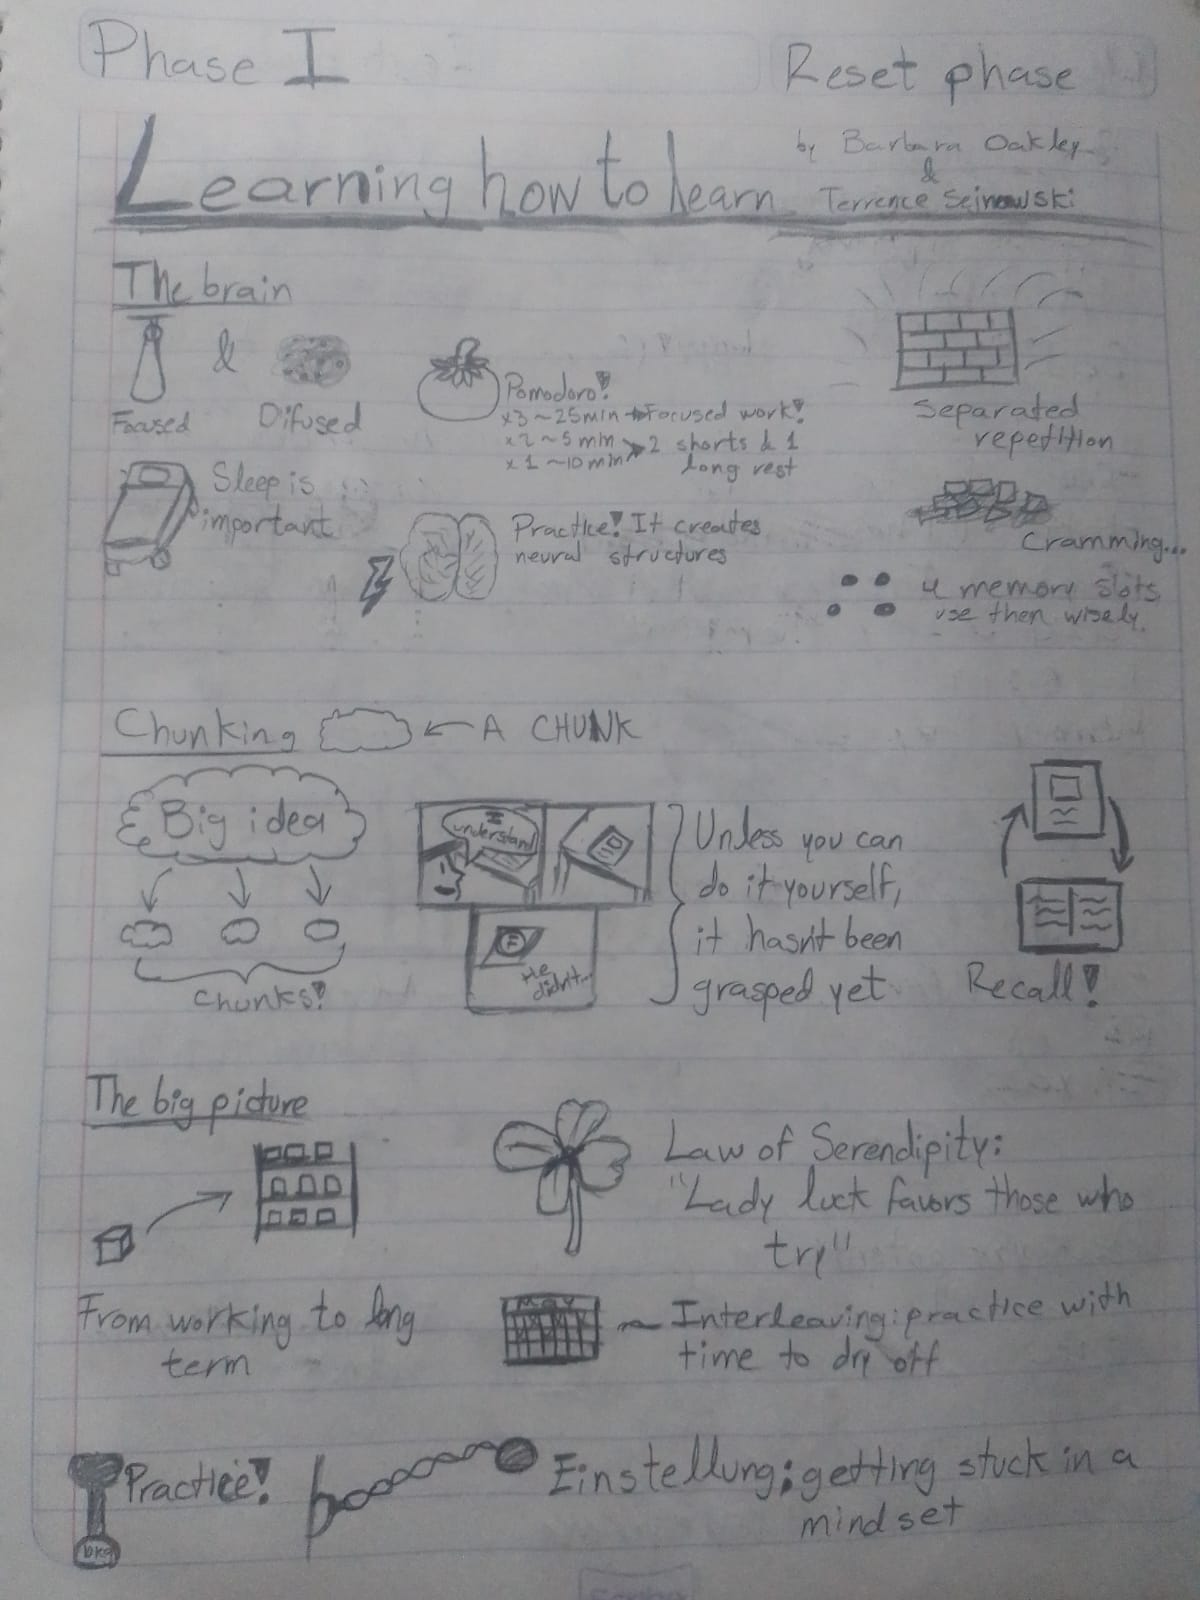 Phase I
Reset phase
Learning how to learn
by Barbara Oakley
&
Terrence Sejnowski
The brain
&
Focused
Difused
Pomodoro!
x3 ~25min → Focused work!
x2 ~5 min → 2 shorts & 1
x1 ~10 min long rest
Separated
repetition
Sleep is
important
Practice! It creates
neural structures
Cramming...
4 memory slots,
use then wisely.
Chunking ← A CHUNK
Big idea
Chunks!
I
understand
F
He
didn't...
Unless you can
do it yourself,
it hasn't been
grasped yet
Recall!
The big picture
Law of Serendipity:
"Lady luck favors those who
try"
From working to long
term
MAY
Interleaving: practice with
time to dry off
Practice!
Einstellung: getting stuck in a
mindset